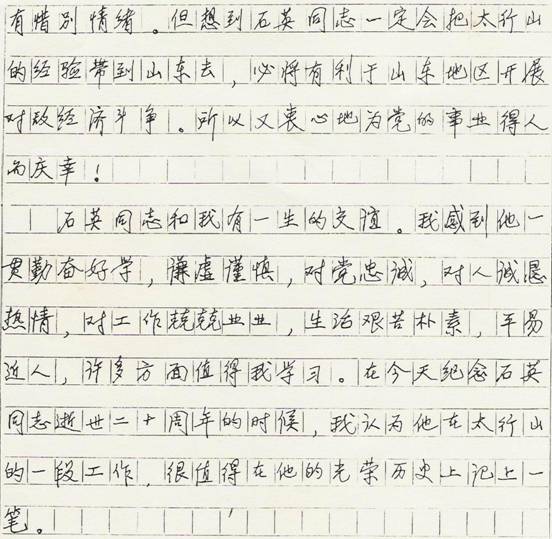 有惜别情绪。但想到石英同志一定会把太行山
的经验带到山东去，必将有利于山东地区开展
对敌经济斗争。所以又衷心地为党的事业得人
而庆幸！
石英同志和我有一生的交谊。我感到他一
贯勤奋好学，谦虚谨慎，对党忠诚，对人诚恳
热情，对工作兢兢业业，生活艰苦朴素，平易
近人，许多方面值得我学习。在今天纪念石英
同志逝世二十周年的时候，我认为他在太行山
的一段工作，很值得在他的光荣历史上记上一
笔。